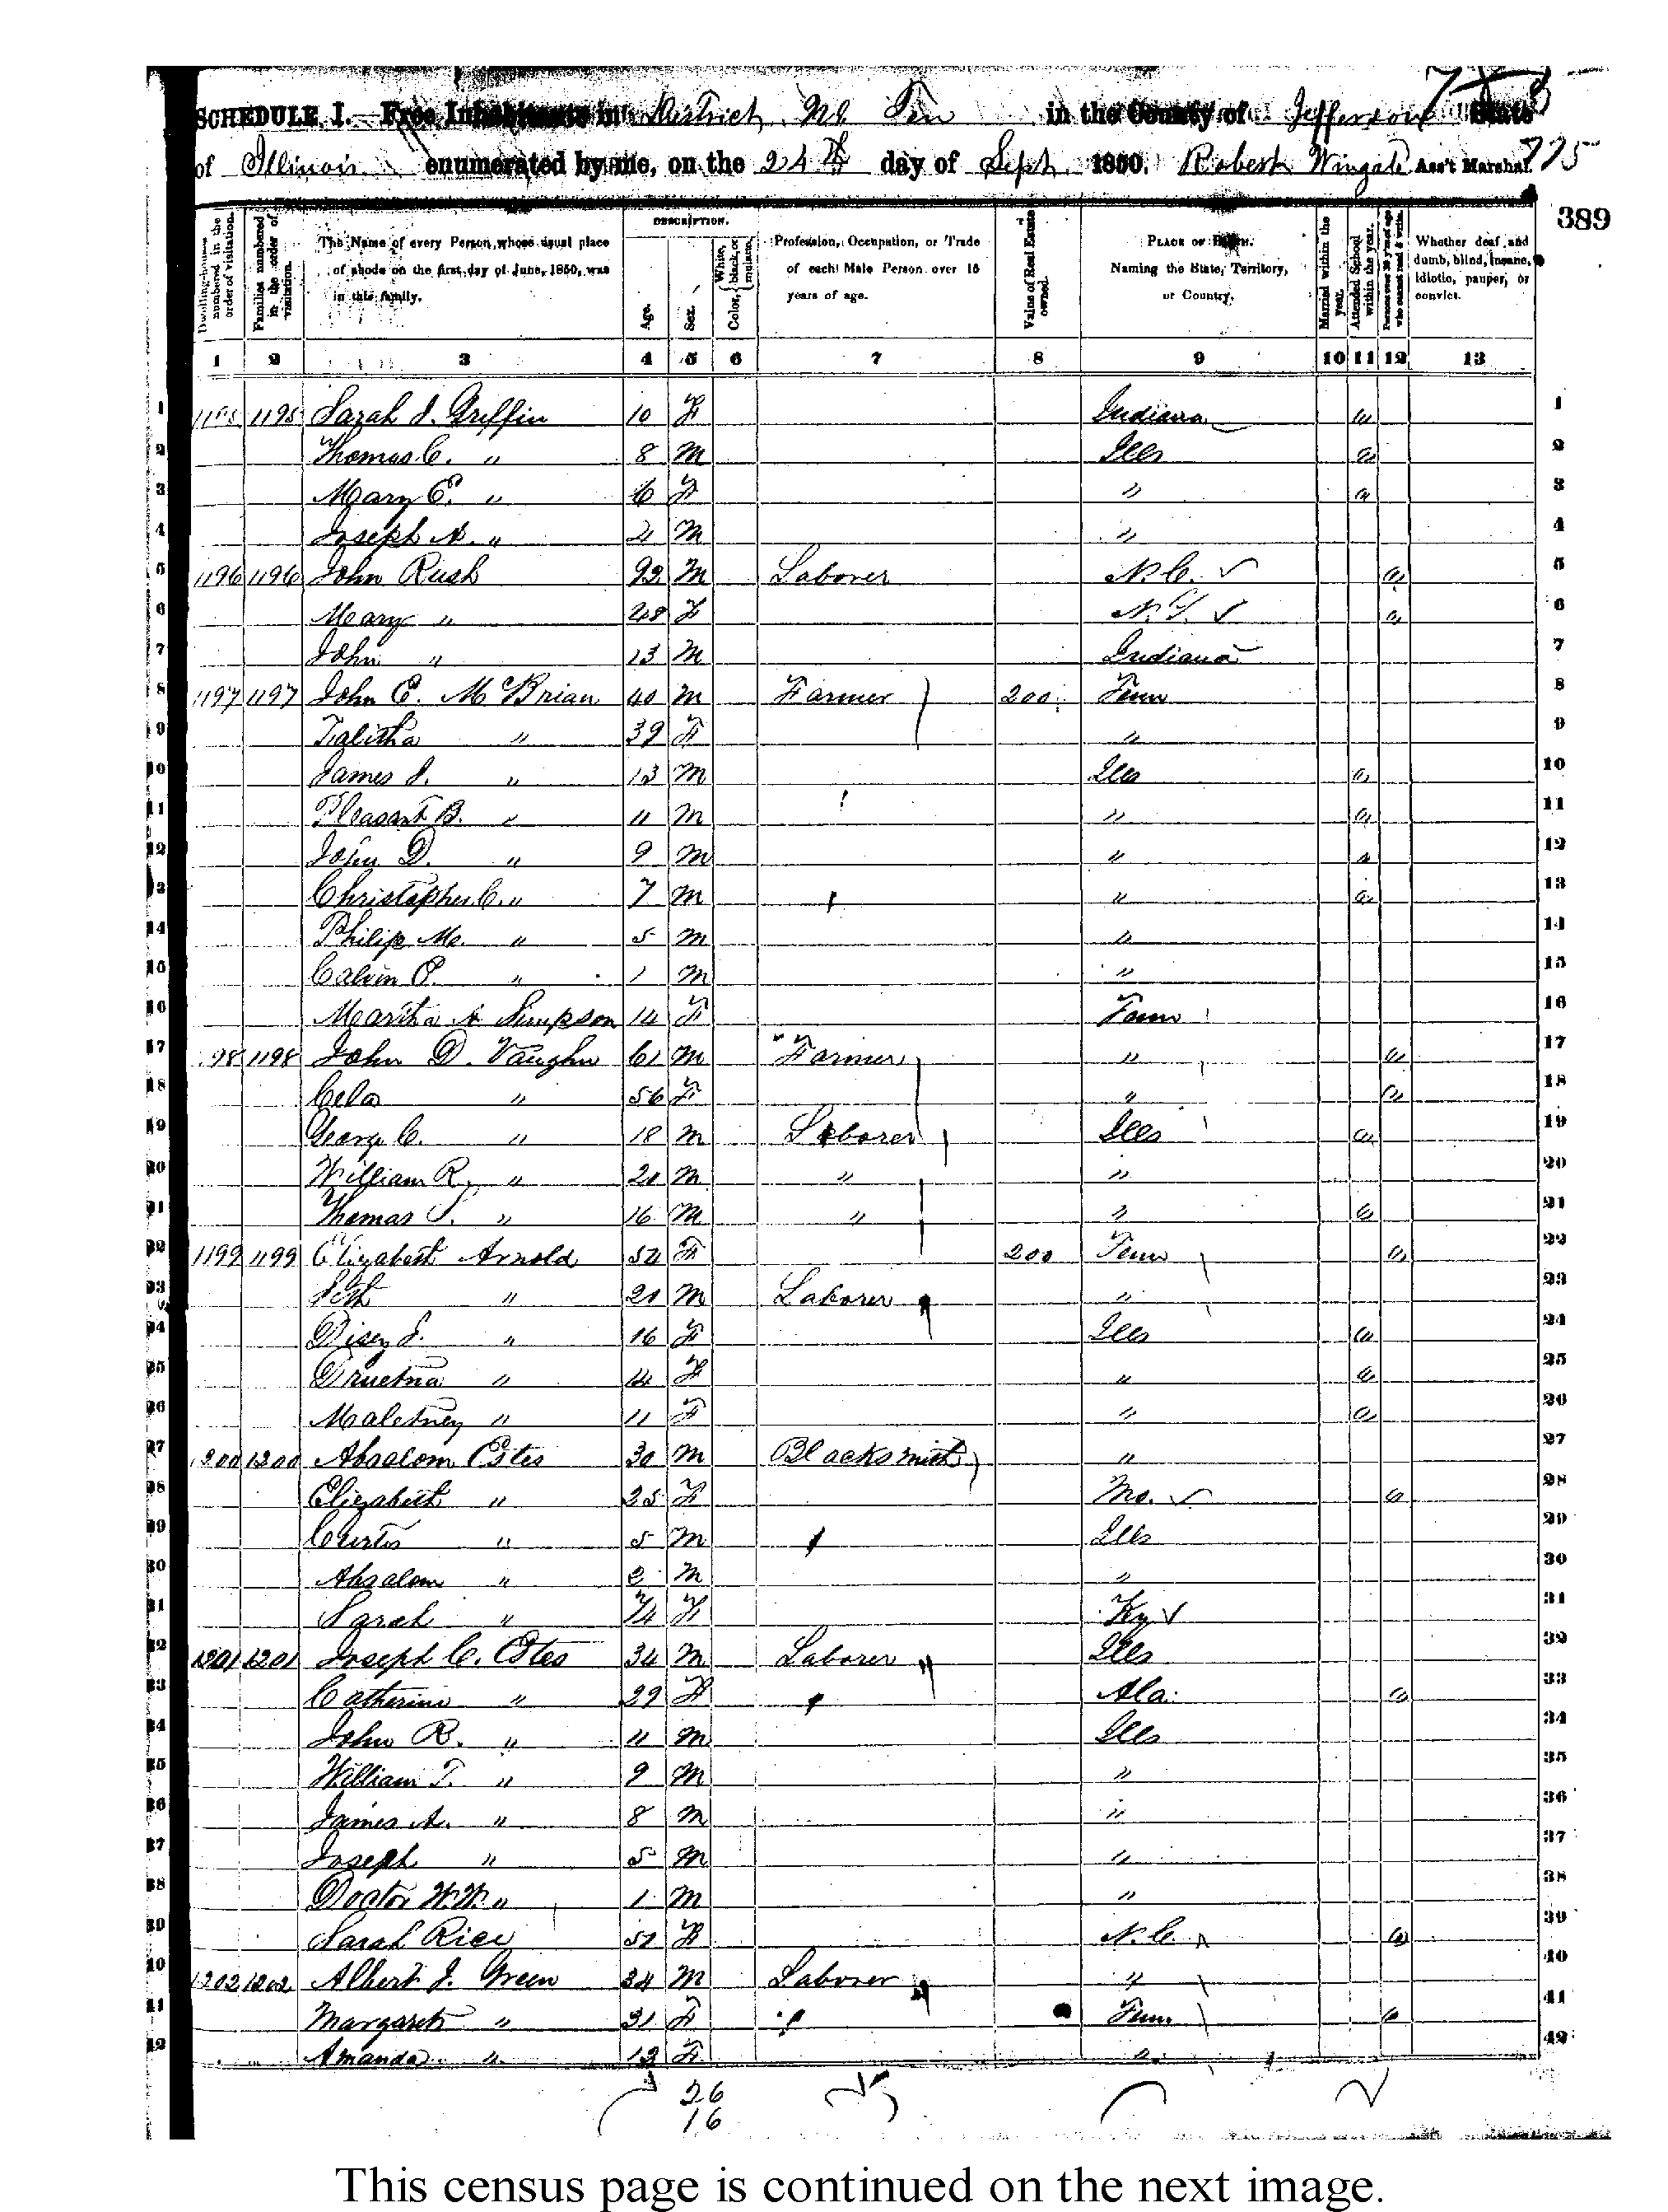 SCHEDULE I.—Free Inhabitants in District No Ten in the County of Jefferson State
of Illinois enumerated by me, on the 24th day of Sept 1850. Robert Wingate Ass't Marshal. 775
389
DESCRIPTION.
Dwelling-houses numbered in the order of visitation.
Families numbered in the order of visitation.
The Name of every Person whose usual place of abode on the first day of June, 1850, was in this family.
Age.
Sex.
Color, White, black, or mulatto.
Profession, Occupation, or Trade of each Male Person over 15 years of age.
Value of Real Estate owned.
PLACE OF BIRTH. Naming the State, Territory, or Country.
Married within the year.
Attended School within the year.
Persons over 20 years of age who cannot read & write.
Whether deaf and dumb, blind, insane, idiotic, pauper, or convict.
1 2 3 4 5 6 7 8 9 10 11 12 13
1 1195 1195 Sarah J. Griffin 10 F Indiana 1
2 Thomas C. " 8 M Ills 2
3 Mary E. " 6 F " 3
4 Joseph N. " 2 M " 4
5 1196 1196 John Rush 93 M Laborer N.C. ✓ 5
6 Mary " 48 F ✓ 6
7 John " 13 M Indiana 7
8 1197 1197 John E. McBrian 40 M Farmer 200 Tenn 8
9 Talitha " 39 F " 9
10 James J. " 13 M Ills 10
11 Pleasant B. " 11 M " 11
12 John D. " 9 M " 12
13 Christopher C. " 7 M " 13
14 Philip Mc. " 5 M " 14
15 Calvin P. " 1 M " 15
16 Martha A Simpson 14 F Tenn 16
17 98 1198 John D. Vaughn 61 M Farmer " 17
18 Cela " 56 F " 18
19 George C. " 18 M Laborer Ills 19
20 William R. " 20 M " " 20
21 Thomas S. " 16 M " " 21
22 1199 1199 Elizabeth Arnold 54 F 200 Tenn 22
23 Seth " 21 M Laborer " 23
24 Disey J. " 16 F Ills 24
25 " 14 F " 25
26 " 11 F " 26
27 1200 1200 Absalom Estes 30 M Blacksmith " 27
28 Elizabeth " 25 F Mo. ✓ 28
29 Curtis " 5 M Ills 29
30 Absalom " 2 M " 30
31 Sarah " 74 F Ky ✓ 31
32 1201 1201 Joseph C. Estes 34 M Laborer Ills 32
33 Catherine " 29 F Ala. 33
34 John R. " 11 M Ills 34
35 William T. " 9 M " 35
36 James A. " 8 M " 36
37 Joseph " 5 M " 37
38 Doctor W.W. " 1 M " 38
39 Sarah Rice 51 F N.C. 39
40 1202 1202 Albert J. Green 34 M Laborer " 40
41 Margaret " 31 F Tenn 41
42 Amanda " 13 F " 42
26
16
This census page is continued on the next image.